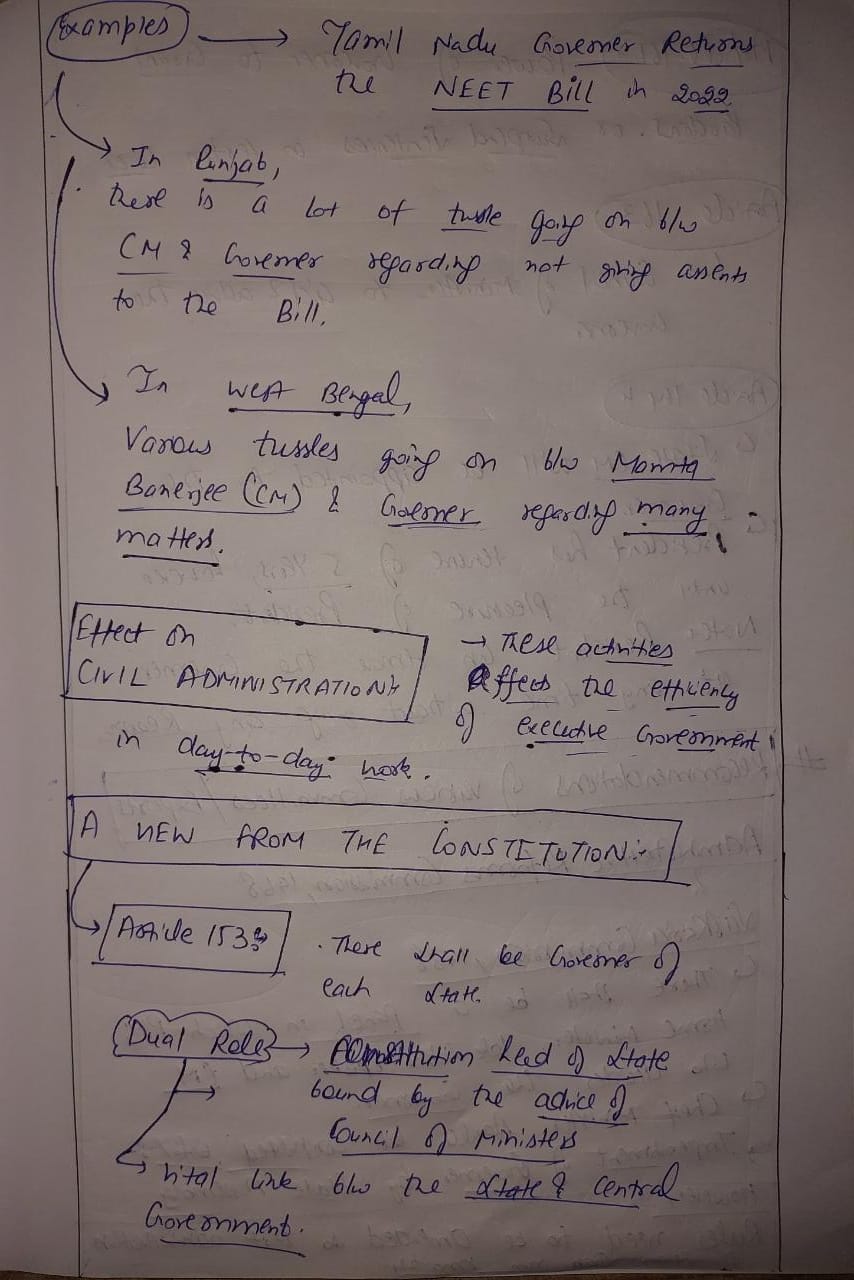 Examples → Tamil Nadu Governer Returns
the NEET Bill in 2022
In Punjab,
there is a lot of tussle going on b/w
CM & Governer regarding not giving assents
to the Bill.
In West Bengal,
Various tussles going on b/w Mamta
Banerjee (CM) & Governer regarding many
matters.
Effect on
CIVIL ADMINISTRATION:-
→ These activities
affects the efficiency
of executive Government
in day-to-day work.
A VIEW FROM THE CONSTITUTION:-
Article 153:
. There shall be Governer of
each state.
Dual Role → Constitution head of state
bound by the advice of
Council of Ministers
→ Vital link b/w the state & central
Government.